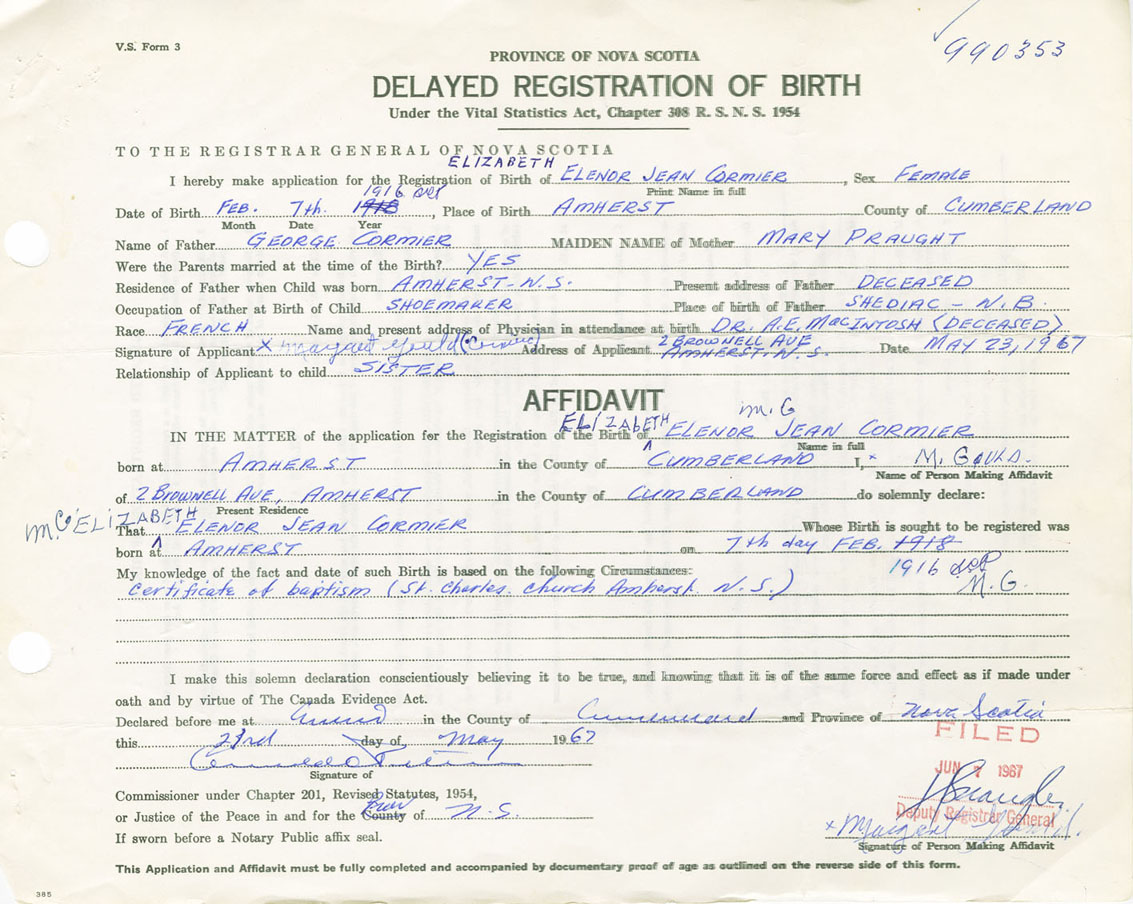 V.S. Form 3
990353
PROVINCE OF NOVA SCOTIA
DELAYED REGISTRATION OF BIRTH
Under the Vital Statistics Act, Chapter 308 R. S. N. S. 1954
TO THE REGISTRAR GENERAL OF NOVA SCOTIA
ELIZABETH
I hereby make application for the Registration of Birth of ELENOR JEAN CORMIER, Sex FEMALE
Print Name in full
1916
Date of Birth FEB. 7th. 1918, Place of Birth AMHERST County of CUMBERLAND
Month Date Year
Name of Father GEORGE CORMIER MAIDEN NAME of Mother MARY PRAUGHT
Were the Parents married at the time of the Birth? YES
Residence of Father when Child was born AMHERST - N.S. Present address of Father DECEASED
Occupation of Father at Birth of Child SHOEMAKER Place of birth of Father SHEDIAC - N.B.
Race FRENCH Name and present address of Physician in attendance at birth DR. A.E. MACINTOSH (DECEASED)
2 BROWNELL AVE
Signature of Applicant x Margaret Gould Address of Applicant AMHERST. N.S. Date MAY 23, 1967
Relationship of Applicant to child SISTER
AFFIDAVIT
ELIZABETH M.G
IN THE MATTER of the application for the Registration of the Birth of ELENOR JEAN CORMIER
Name in full
born at AMHERST in the County of CUMBERLAND I, x M. GOULD.
Name of Person Making Affidavit
of 2 BROWNELL AVE, AMHERST in the County of CUMBERLAND do solemnly declare:
Present Residence
M.G ELIZABETH
That ELENOR JEAN CORMIER Whose Birth is sought to be registered was
born at AMHERST on 7th day FEB. 1918
1916
My knowledge of the fact and date of such Birth is based on the following Circumstances:
M.G.
Certificate of baptism (St. Charles. Church Amherst. N.S.)
I make this solemn declaration conscientiously believing it to be true, and knowing that it is of the same force and effect as if made under
oath and by virtue of The Canada Evidence Act.
Declared before me at in the County of Cumberland and Province of Nova Scotia
this 23rd day of May 1967
Signature of
FILED
JUN 7 1967
Commissioner under Chapter 201, Revised Statutes, 1954,
or Justice of the Peace in and for the County of N.S.
Deputy Registrar General
x Margaret Gould.
Signature of Person Making Affidavit
If sworn before a Notary Public affix seal.
This Application and Affidavit must be fully completed and accompanied by documentary proof of age as outlined on the reverse side of this form.
385